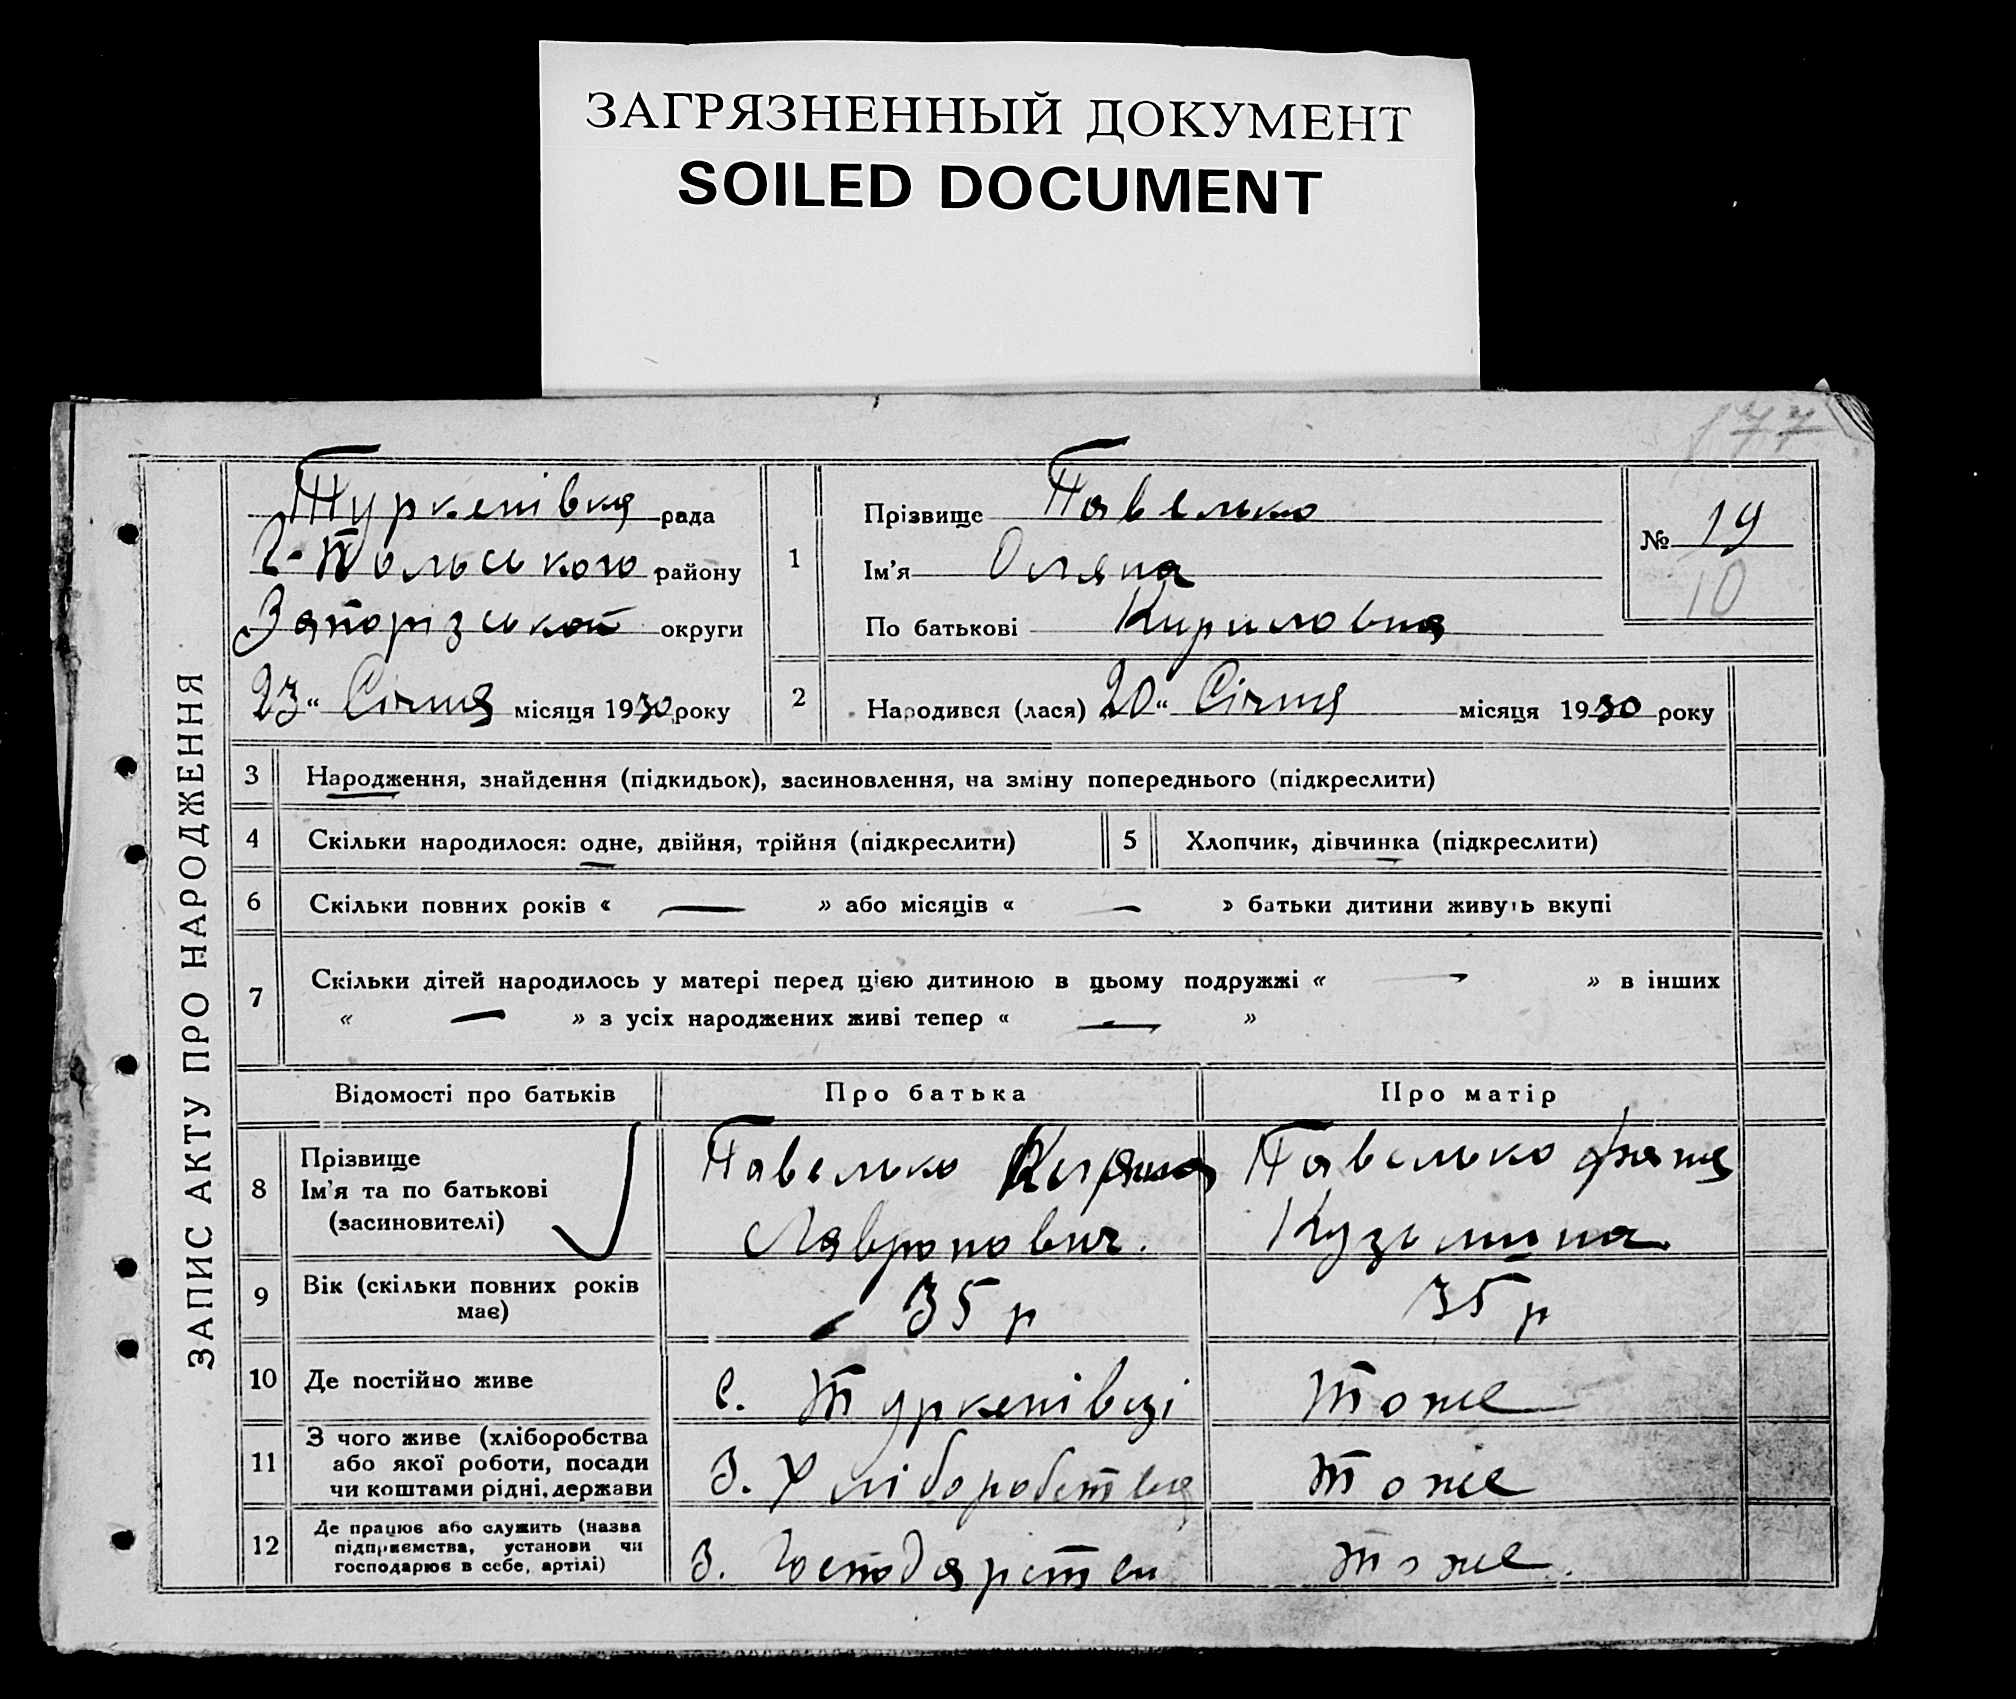 ЗАГРЯЗНЕННЫЙ ДОКУМЕНТ
SOILED DOCUMENT
177
ЗАПИС АКТУ ПРО НАРОДЖЕННЯ
Туркенівка рада
району
Запорізської округи
23 « Січня місяця 1930 року
1
Прізвище Павелько
Ім'я Оляна
По батькові Кириловна
№ 19
10
2
Народився (лася) 20 « Січня місяця 1930 року
3 Народження, знайдення (підкидьок), засиновлення, на зміну попереднього (підкреслити)
4 Скільки народилося: одне, двійня, трійня (підкреслити)
5 Хлопчик, дівчинка (підкреслити)
6 Скільки повних років « — » або місяців « — » батьки дитини живуть вкупі
7 Скільки дітей народилось у матері перед цією дитиною в цьому подружжі « — » в інших
« — » з усіх народжених живі тепер « — »
Відомості про батьків Про батька Про матір
8 Прізвище
Ім'я та по батькові
(засиновителі)
Павелько
Лавронович.
Павелько
Кузьмина
9 Вік (скільки повних років
має)
35 р
35 р
10 Де постійно живе
с. Туркенівці
тоже
11 З чого живе (хліборобства
або якої роботи, посади
чи коштами рідні, держави
З. Хліборобства
тоже
12 Де працює або служить (назва
підприємства, установи чи
господарює в себе, артілі)
З.
тоже.